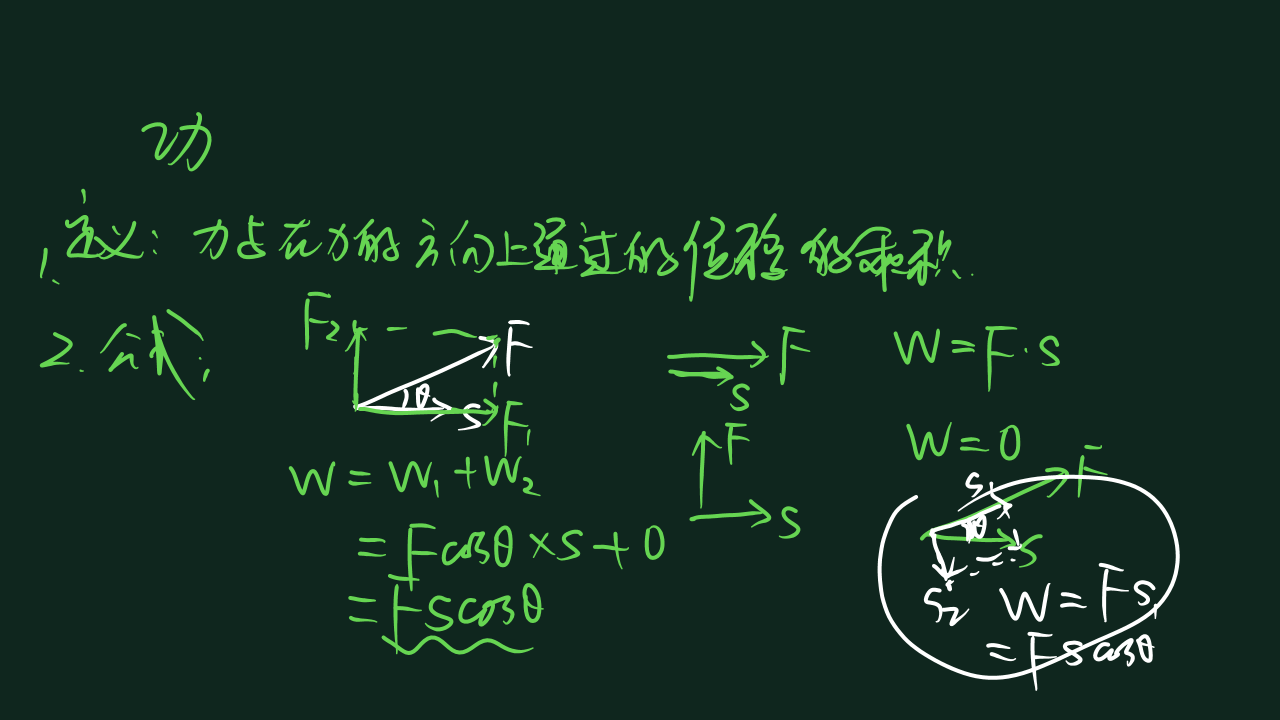 功
1. 定义: 力与在力的方向上通过的位移的乘积.
2. 公式:
F₂
F
θ
S
F₁
W = W₁ + W₂
= Fcosθ × S + 0
= FScosθ
F
S
W = F·S
F
S
W = 0
F
S₁
θ
S
S₂
W = FS₁
= FScosθ